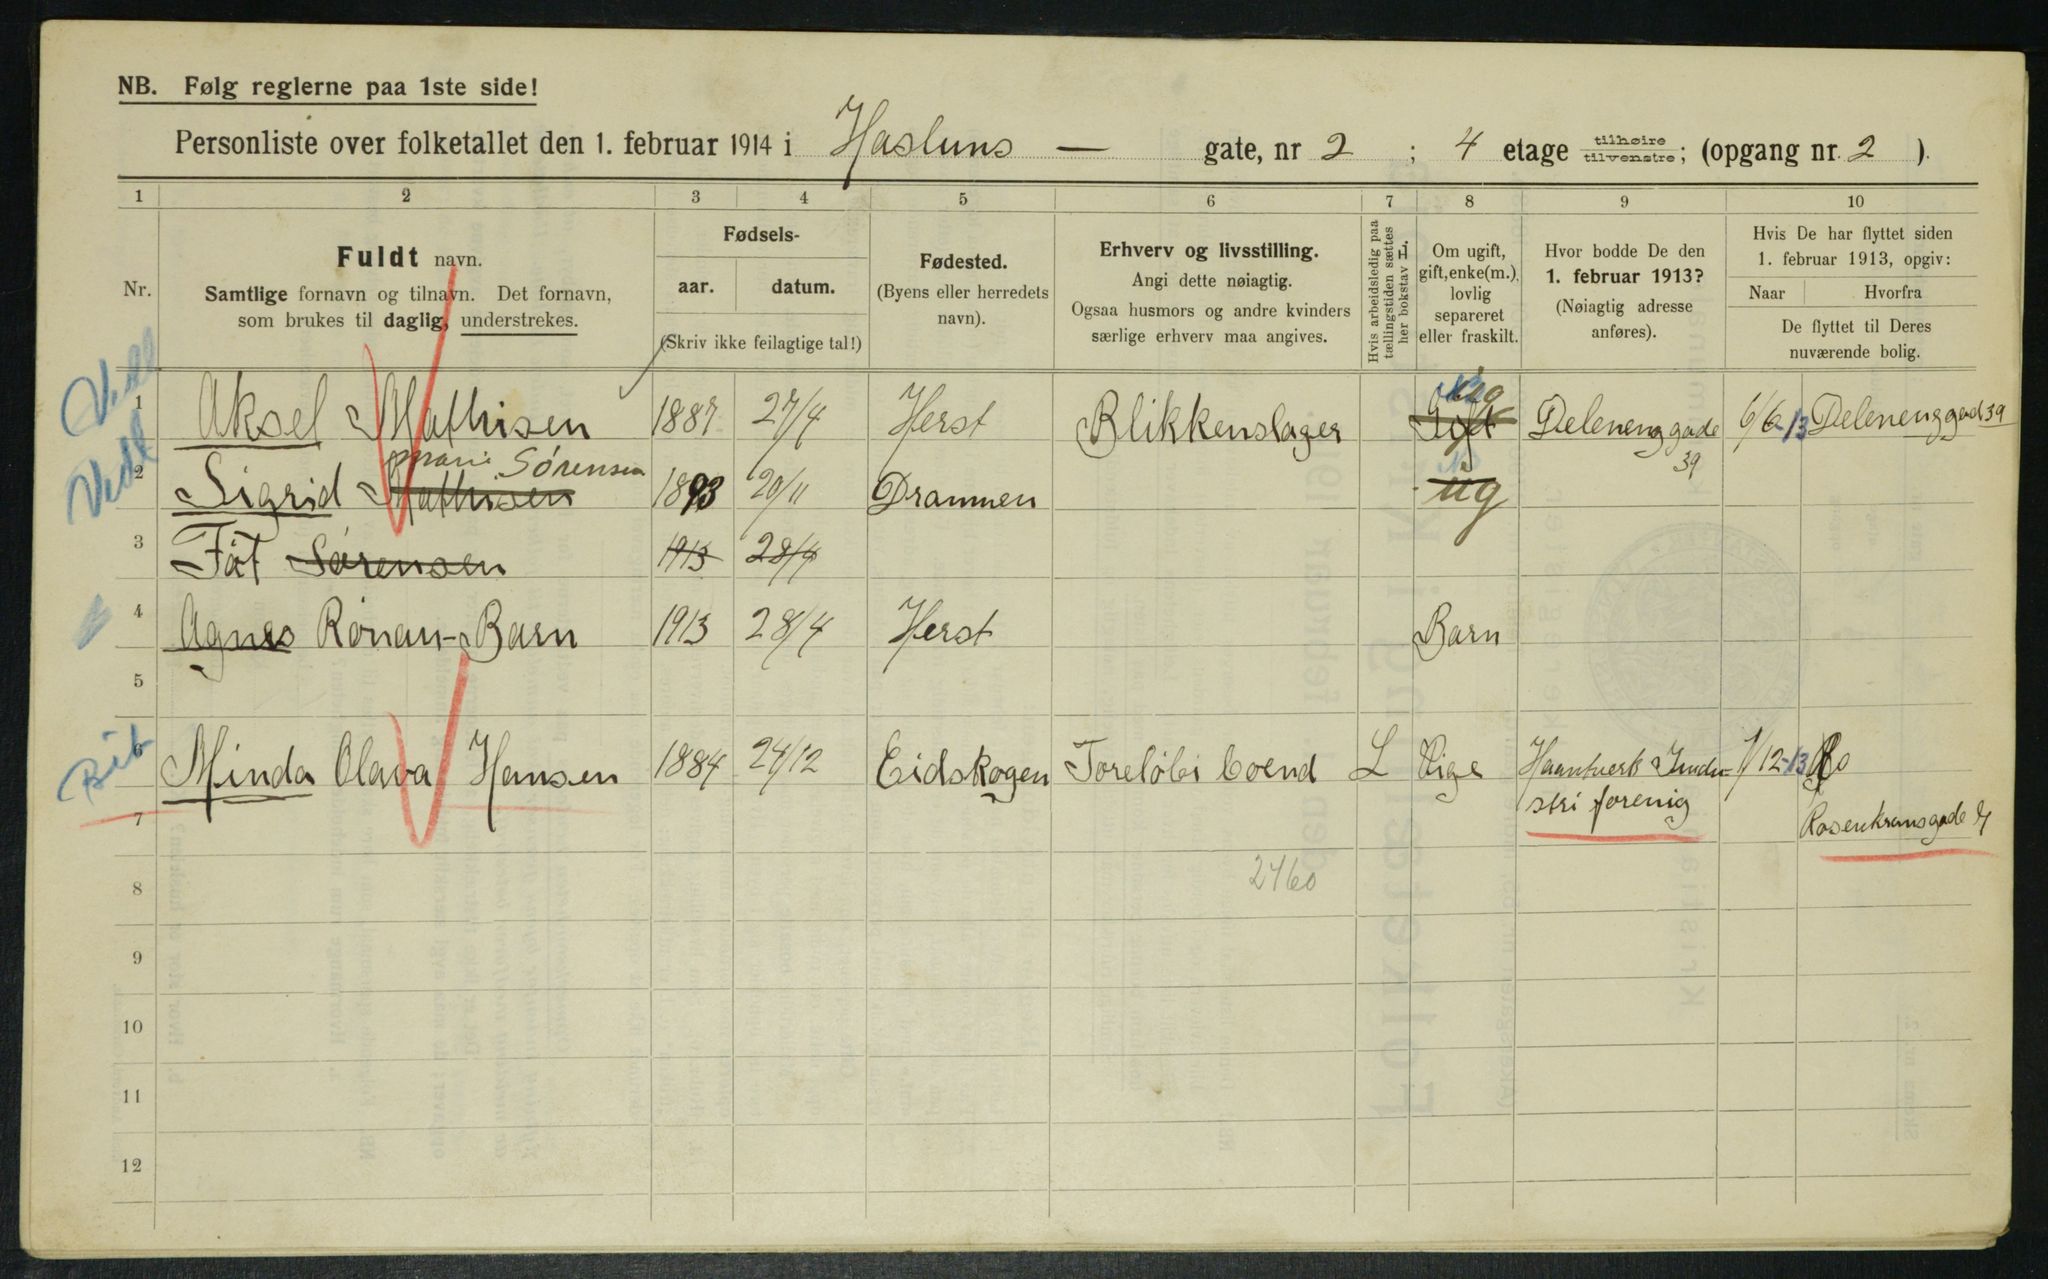 NB. Følg reglerne paa 1ste side!
Personliste over folketallet den 1. februar 1914 i Hasluns — gate, nr 2 ; 4 etage tilhøire tilvenstre; (opgang nr. 2 ).
1 2 3 4 5 6 7 8 9 10
Nr.
Fuldt navn.
Samtlige fornavn og tilnavn. Det fornavn,
som brukes til daglig, understrekes.
Fødsels-
aar. datum.
(Skriv ikke feilagtige tal!)
Fødested.
(Byens eller herredets
navn).
Erhverv og livsstilling.
Angi dette nøiagtig.
Ogsaa husmors og andre kvinders
særlige erhverv maa angives.
Hvis arbeidsledig paa
tællingstiden sættes
her bokstav L.
Om ugift,
gift, enke(m.),
lovlig
separeret
eller fraskilt.
Hvor bodde De den
1. februar 1913?
(Nøiagtig adresse
anføres).
Hvis De har flyttet siden
1. februar 1913, opgiv:
Naar Hvorfra
De flyttet til Deres
nuværende bolig.
1 Aksel Mathisen 1887 27/4 Herst Blikkenslager Gift ug Deleneng gade 39 6/6-13 Deleneng gad 39
Marie Sørensen
2 Sigrid Mathisen 1893 20/11 Drammen ug
3 Föt Sørensen 1913 28/4
4 Agnes Rönau-Barn 1913 28/4 Herst Barn
5
6 Minda Olava Hansen 1884 24/12 Eidskogen Toreløbi boend L Uige Haantverk Indu- 1/12-13
7 stri forenig Rosenkransgade 7
8 2460
9
10
11
12